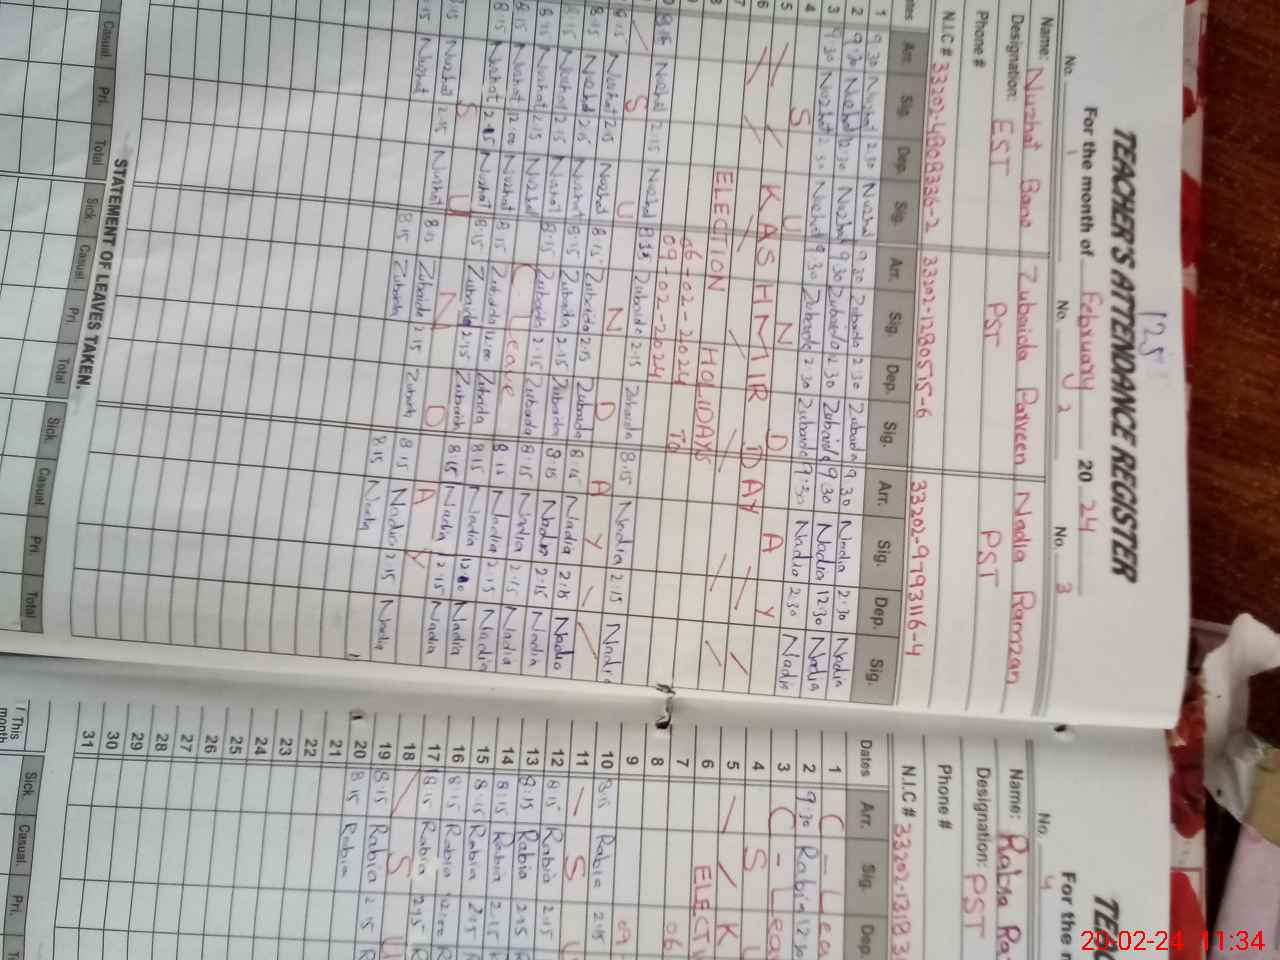 125
TEACHER'S ATTENDANCE REGISTER
For the month of February 20 24
No. 1 No. 2 No. 3
Name: Nuzhat Bano Zubaida Parveen Nadia Ramzan
Designation: EST PST PST
Phone #
N.I.C # 33202-4808336-2 33202-1280575-6 33202-9793116-4
Dates Arr. Sig. Dep. Sig. Arr. Sig. Dep. Sig. Arr. Sig. Dep. Sig.
1 9:30 Nuzhat 2:30 Nuzhat 9:30 Zubaida 2:30 Zubaida 9:30 Nadia 2:30 Nadia
2 9:30 Nuzhat 2:30 Nuzhat 9:30 Zubaida 2:30 Zubaida 9:30 Nadia 12:30 Nadia
3 9:30 Nuzhat 2:30 Nuzhat 9:30 Zubaida 2:30 Zubaida 9:30 Nadia 2:30 Nadia
4 S U N D A Y
5 KASHMIR DAY
6 ELECTION HOLIDAYS
7 06-02-2024 To
8 09-02-2024
8:15 Nuzhat 2:15 Nuzhat 8:15 Zubaida 2:15 Zubaida 8:15 Nadia 2:15 Nadia
S U N D A Y
8:15 Nuzhat 2:15 Nuzhat 8:15 Zubaida 2:15 Zubaida 8:15 Nadia 2:15 Nadia
8:15 Nuzhat 2:15 Nuzhat 8:15 Zubaida 2:15 Zubaida 8:15 Nadia 2:15 Nadia
8:15 Nuzhat 2:15 Nuzhat 8:15 Zubaida 2:15 Zubaida 8:15 Nadia 2:15 Nadia
8:15 Nuzhat 2:15 Nuzhat 8:15 C Leave 8:15 Nadia 2:15 Nadia
8:15 Nuzhat 12:00 Nuzhat 8:15 Zubaida 12:00 Zubaida 8:15 Nadia 12:00 Nadia
8:15 Nuzhat 2:15 Nuzhat 8:15 Zubaida 2:15 Zubaida 8:15 Nadia 2:15 Nadia
S U N D A Y
8:15 Nuzhat 2:15 Nuzhat 8:15 Zubaida 2:15 Zubaida 8:15 Nadia 2:15 Nadia
8:15 Nuzhat 8:15 Zubaida 8:15 Nadia
STATEMENT OF LEAVES TAKEN.
Casual. Pri. Total Sick. Casual Pri. Total Sick. Casual Pri. Total
No. 4
For the
Name: Rabia
Designation: PST
Phone #
N.I.C # 33202-1318
Dates Arr. Sig. Dep.
1 C - Lea
2 9:30 Rabia 12:30
3 C - Lea
4 S U
5 K
6 ELECT
7 06
8
9 09
10 8:15 Rabia 2:15
11 S U
12 8:15 Rabia 2:15
13 8:15 Rabia 2:15
14 8:15 Rabia 2:15
15 8:15 Rabia 2:15
16 8:15 Rabia 12:00
17 8:15 Rabia 2:15
18 S U
19 8:15 Rabia 2:15
20 8:15 Rabia
21
22
23
24
25
26
27
28
29
30
31
This month
Sick Casual. Pri.
20-02-24 11:34